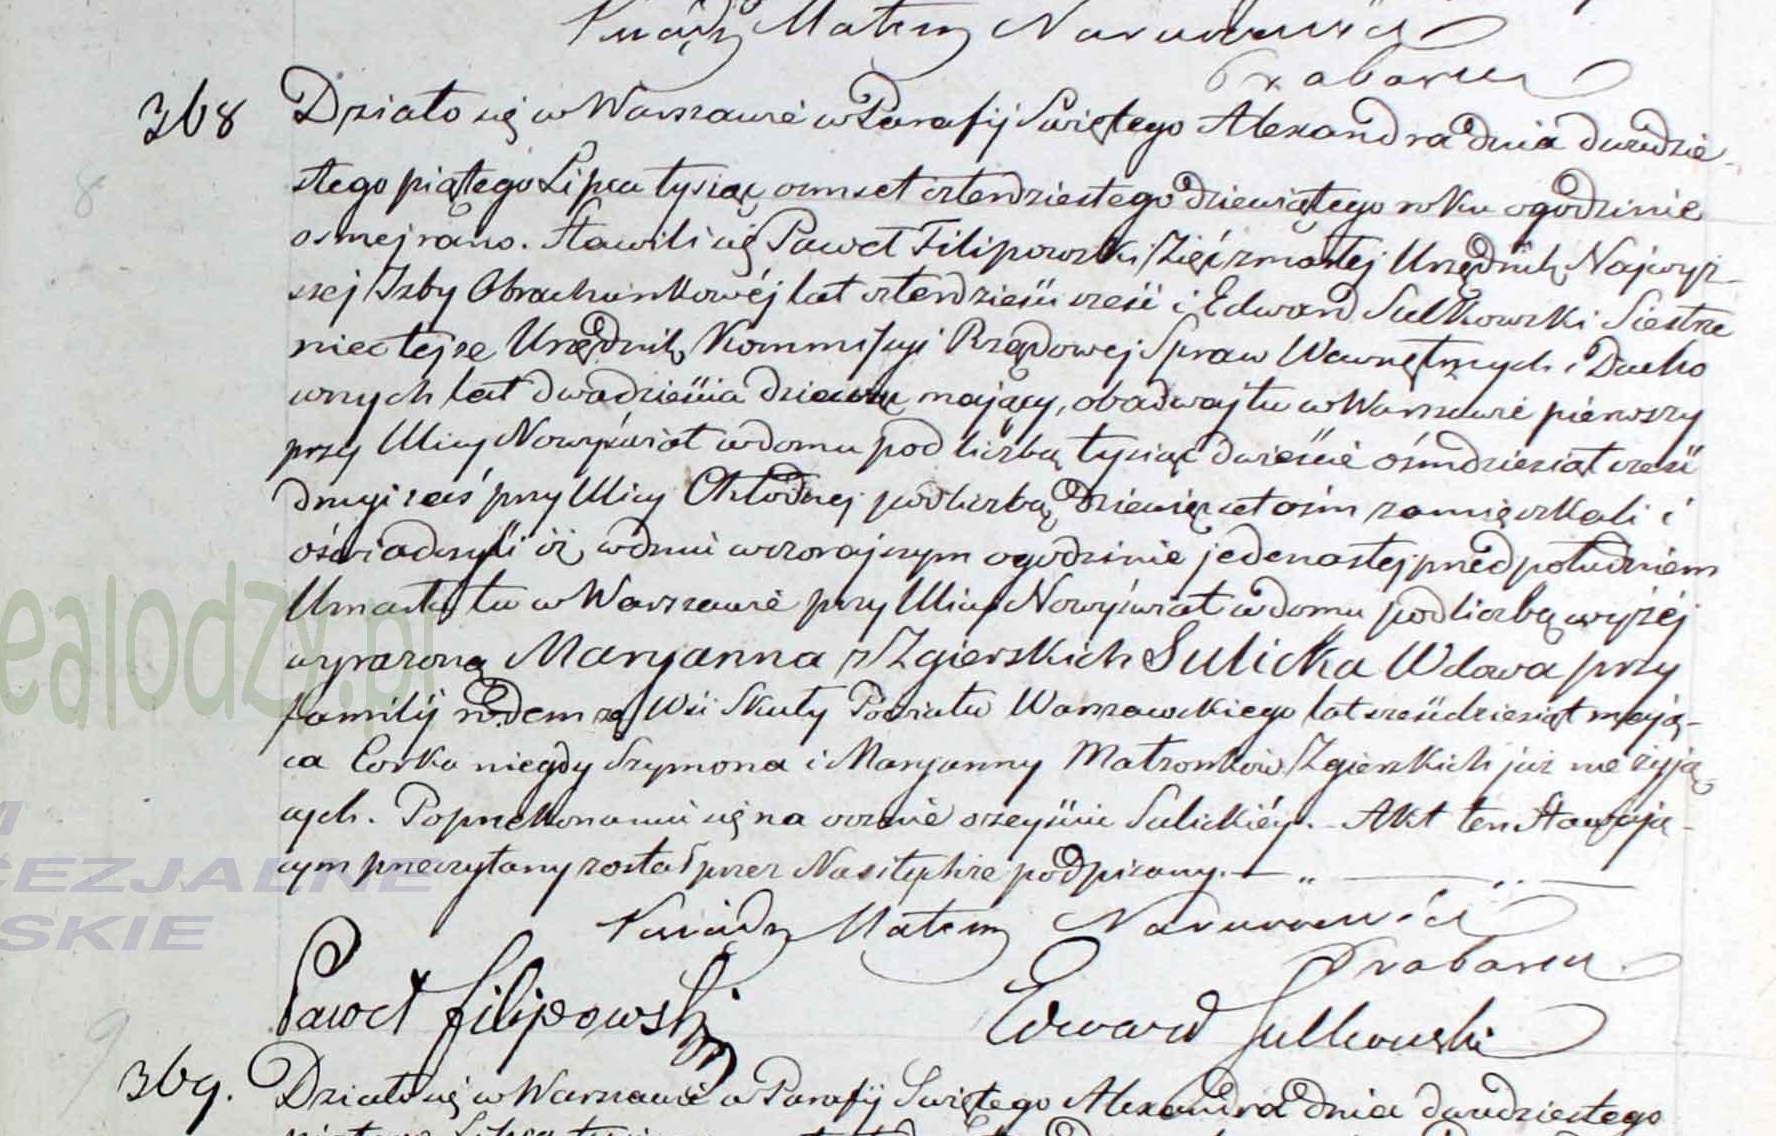 Xiądz Mateusz Naruszewicz
Grabarz
368 Działo się w Warszawie w Parafij Swiętego Alexandra dnia dwudzie-
8 stego piątego Lipca tysiąc osmset czterdziestego dziewiątego roku o godzinie
osmej rano. Stawili się Paweł Filipowski Zięć zmarłej Urzędnik Najwyż-
szej Izby Obrachunkowéj lat czterdzieści sześć i Edward Sulkowski Siestrze
niec tejże Urzędnik Kommissyi Rządowej Spraw Wewnętrznych i Ducho
wnych lat dwadzieścia dziewięć mający, obadwaj tu w Warszawie pierwszy
przy Ulicy Nowyświat w domu pod liczbą tysiąc dwieście ośmdziesiąt sześć
drugi zaś przy Ulicy Chłodnej pod liczbą dziewięćset ośm zamięszkali i
oświadczyli iż w dniu wczorajszym o godzinie jedenastej przed południem
Umarła tu w Warszawie przy Ulicy Nowyświat w domu pod liczbą wyżéj
wyrażoną Maryanna z Zgierskich Sulicka Wdowa przy
familij rodem ze Wsi Skuły Powiatu Warszawskiego lat sześćdziesiąt mają-
ca Corka niegdy Szymona i Maryanny Małżonków Zgierskich już nie żyją
cych. Po przekonaniu się na ocznie o zeyściu Sulickiéy. Akt ten Stawają-
cym przeczytany został przez Nas i tychże podpisany.
Xiądz Mateusz Naruszewicz
Grabarz
Paweł Filipowski Edward Sulkowski
9
369. Działo się w Warszawie w Parafij Swiętego Alexandra dnia dwudziestego
piątego Lipca
ealodzy.pl
EZJALNE
SKIE